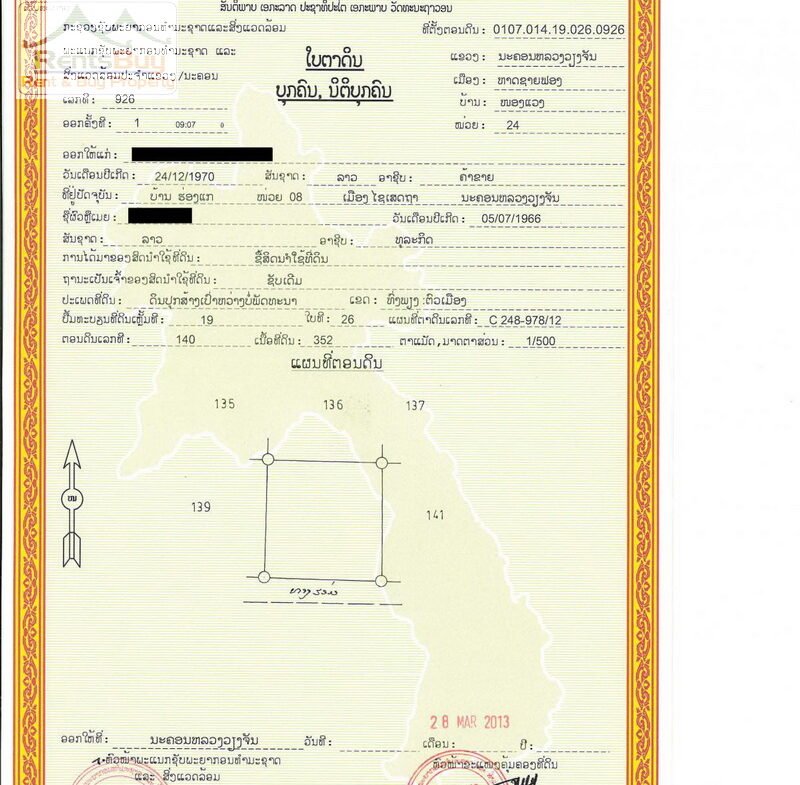 ສັນຕິພາບ ເອກະລາດ ປະຊາທິປະໄຕ ເອກະພາບ ວັດທະນະຖາວອນ
ກະຊວງຊັບພະຍາກອນທຳມະຊາດແລະສິ່ງແວດລ້ອມ
ທີ່ຕັ້ງຕອນດິນ : 0107.014.19.026.0926
ພະແນກຊັບພະຍາກອນທຳມະຊາດ ແລະ
ໃບຕາດິນ
ແຂວງ : ນະຄອນຫລວງວຽງຈັນ
RentsBuy
ສິ່ງແວດລ້ອມປະຈຳແຂວງ/ນະຄອນ
Rent & Buy Property
ບຸກຄົນ, ນິຕິບຸກຄົນ
ເມືອງ : ຫາດຊາຍຟອງ
ເລກທີ : 926
ບ້ານ : ໜອງແວງ
ອອກຄັ້ງທີ : 1 09:07
ໜ່ວຍ : 24
ອອກໃຫ້ແກ່ :
ວັນເດືອນປີເກີດ : 24/12/1970 ສັນຊາດ : ລາວ ອາຊີບ : ຄ້າຂາຍ
ທີ່ຢູ່ປັດຈຸບັນ : ບ້ານ ຮ່ອງແກ ໜ່ວຍ 08 ເມືອງ ໄຊເສດຖາ ນະຄອນຫລວງວຽງຈັນ
ຊື່ຜົວຫຼືເມຍ : ວັນເດືອນປີເກີດ : 05/07/1966
ສັນຊາດ : ລາວ ອາຊີບ : ທຸລະກິດ
ການໄດ້ມາຂອງສິດນຳໃຊ້ທີ່ດິນ : ຊື້ສິດນຳໃຊ້ທີ່ດິນ
ຖານະເປັນເຈົ້າຂອງສິດນຳໃຊ້ທີ່ດິນ : ຊັບເດີມ
ປະເພດທີ່ດິນ : ດິນປຸກສ້າງເປົ່າຫວ່າງບໍ່ພັດທະນາ ເຂດ : ທົ່ງພຽງ :ຕົວເມືອງ
ປຶ້ມທະບຽນທີ່ດິນເຫຼັ້ມທີ : 19 ໃບທີ : 26 ແຜນທີ່ຕາດິນເລກທີ : C 248-978/12
ຕອນດິນເລກທີ : 140 ເນື້ອທີ່ດິນ : 352 ຕາແມັດ , ມາດຕາສ່ວນ : 1/500
ແຜນທີ່ຕອນດິນ
135 136 137
139
141
ທາງຮ່ວມ
28 MAR 2013
ອອກໃຫ້ທີ່ : ນະຄອນຫລວງວຽງຈັນ ວັນທີ : ເດືອນ : ປີ :
ຫົວໜ້າພະແນກຊັບພະຍາກອນທຳມະຊາດ
ແລະ ສິ່ງແວດລ້ອມ
ຫົວໜ້າຂະແໜງຄຸ້ມຄອງທີ່ດິນ